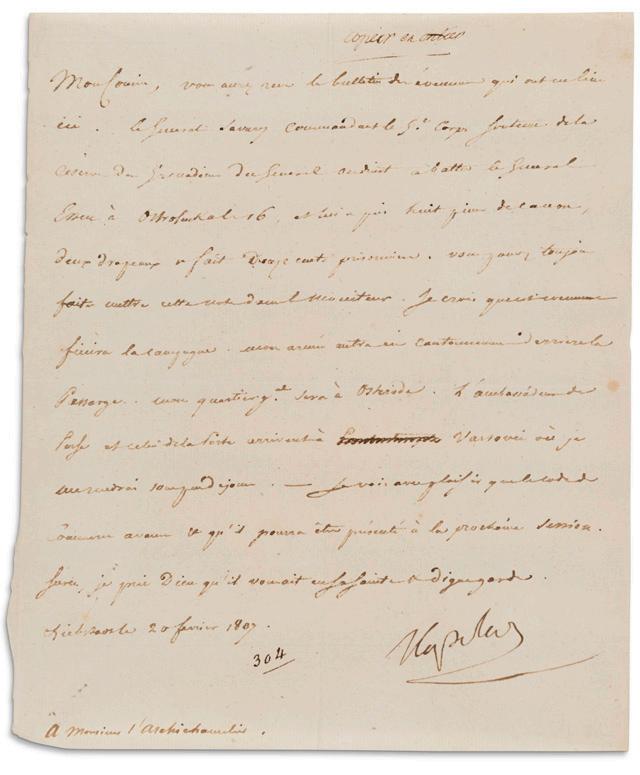 copier en entier
Mon Cousin, vous aurez reçu le bulletin des évenemens qui ont eu lieu
ici. Le General Savary Commandant le 5e Corps soutenu de la
réserve de Grenadiers du General oudinot a battu le General
Essen à Ostrolenka le 16, et lui a pris huit pieces de canon,
deux drapeaux & fait Douze cents prisonniers. vous pouvez toujours
faire mettre cette note dans le moniteur. Je crois que ceci
finira la campagne. mon armée entre en cantonnemens derriere la
Passarge. mon quartier gal sera à Osterode. L'ambassadeur de
Perse et celui de la Porte arrivent à Varsovie où je
me rendrai sous peu de jours. — Je vois avec plaisir que le code de
Commerce avance & qu'il pourra être présenté à la prochaine session.
Surce, je prie Dieu qu'il vous ait en sa sainte & digne garde.
Liebstadt le 20 fevrier 1807.
304
Napoleon
A Monsieur l'Archichancelier.